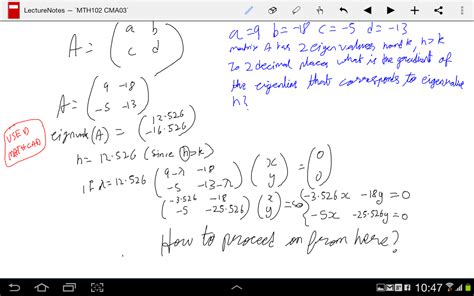 LectureNotes — MTH102 CMA03
A = ( a b
c d )
a=9 b=-18 c=-5 d=-13
matrix A has 2 eigenvalues, h and k, h>k
To 2 decimal places, what is the gradient of
the eigenline that corresponds to eigenvalue
h?
A = ( 9 -18
-5 -13 )
USED
MATHCAD
eigenvals(A) = ( 12.526
-16.526 )
h = 12.526 (since h>k)
if λ=12.526 ( 9-λ -18
-5 -13-λ ) ( x
y ) = ( 0
0 )
( -3.526 -18
-5 -25.526 ) ( x
y ) = so { -3.526x -18y = 0
-5x -25.526y = 0
How to proceed on from here?
10:47